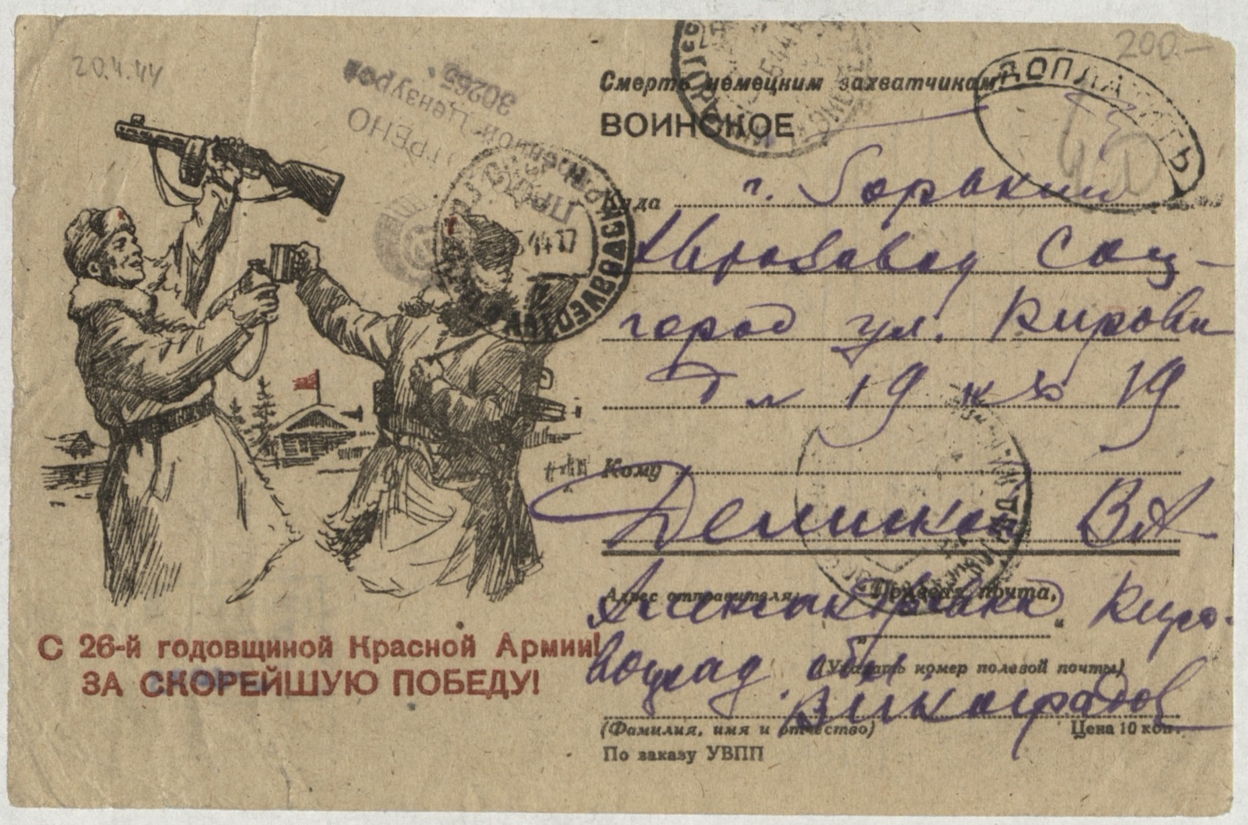 20.4.44
200.-
Смерть немецким захватчикам!
ВОИНСКОЕ
ДОПЛАТИТЬ
30265
Военной Цензурой
Куда г. Горький
Автозавод Соц-
город ул. Кирова
19 19
Кому
В А
Адрес отправителя: Полевая почта,
Киро-
воград. обл
(Указать номер полевой почты)
Виноградов
(Фамилия, имя и отчество) Цена 10 коп.
По заказу УВПП
С 26-й годовщиной Красной Армии!
ЗА СКОРЕЙШУЮ ПОБЕДУ!